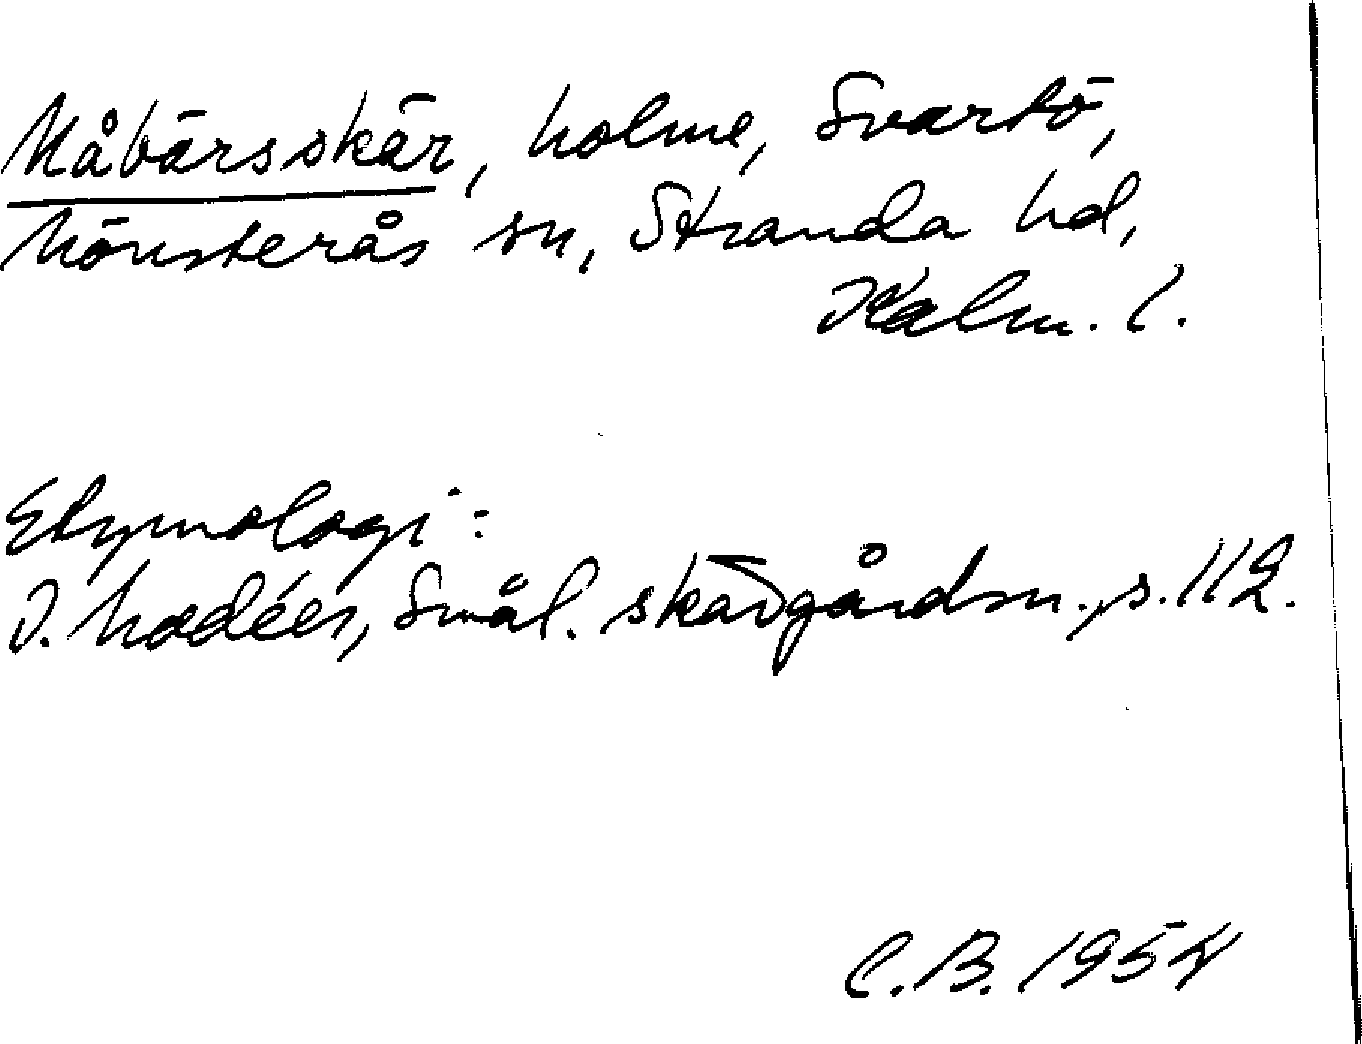 Måbärsskär, holme, Svartö,
Mönsterås sn, Stranda hd,
Kalm. l.
Etymologi:
I. Modéer, Smål. skärgårdsn., s. 112.
C.B. 1954